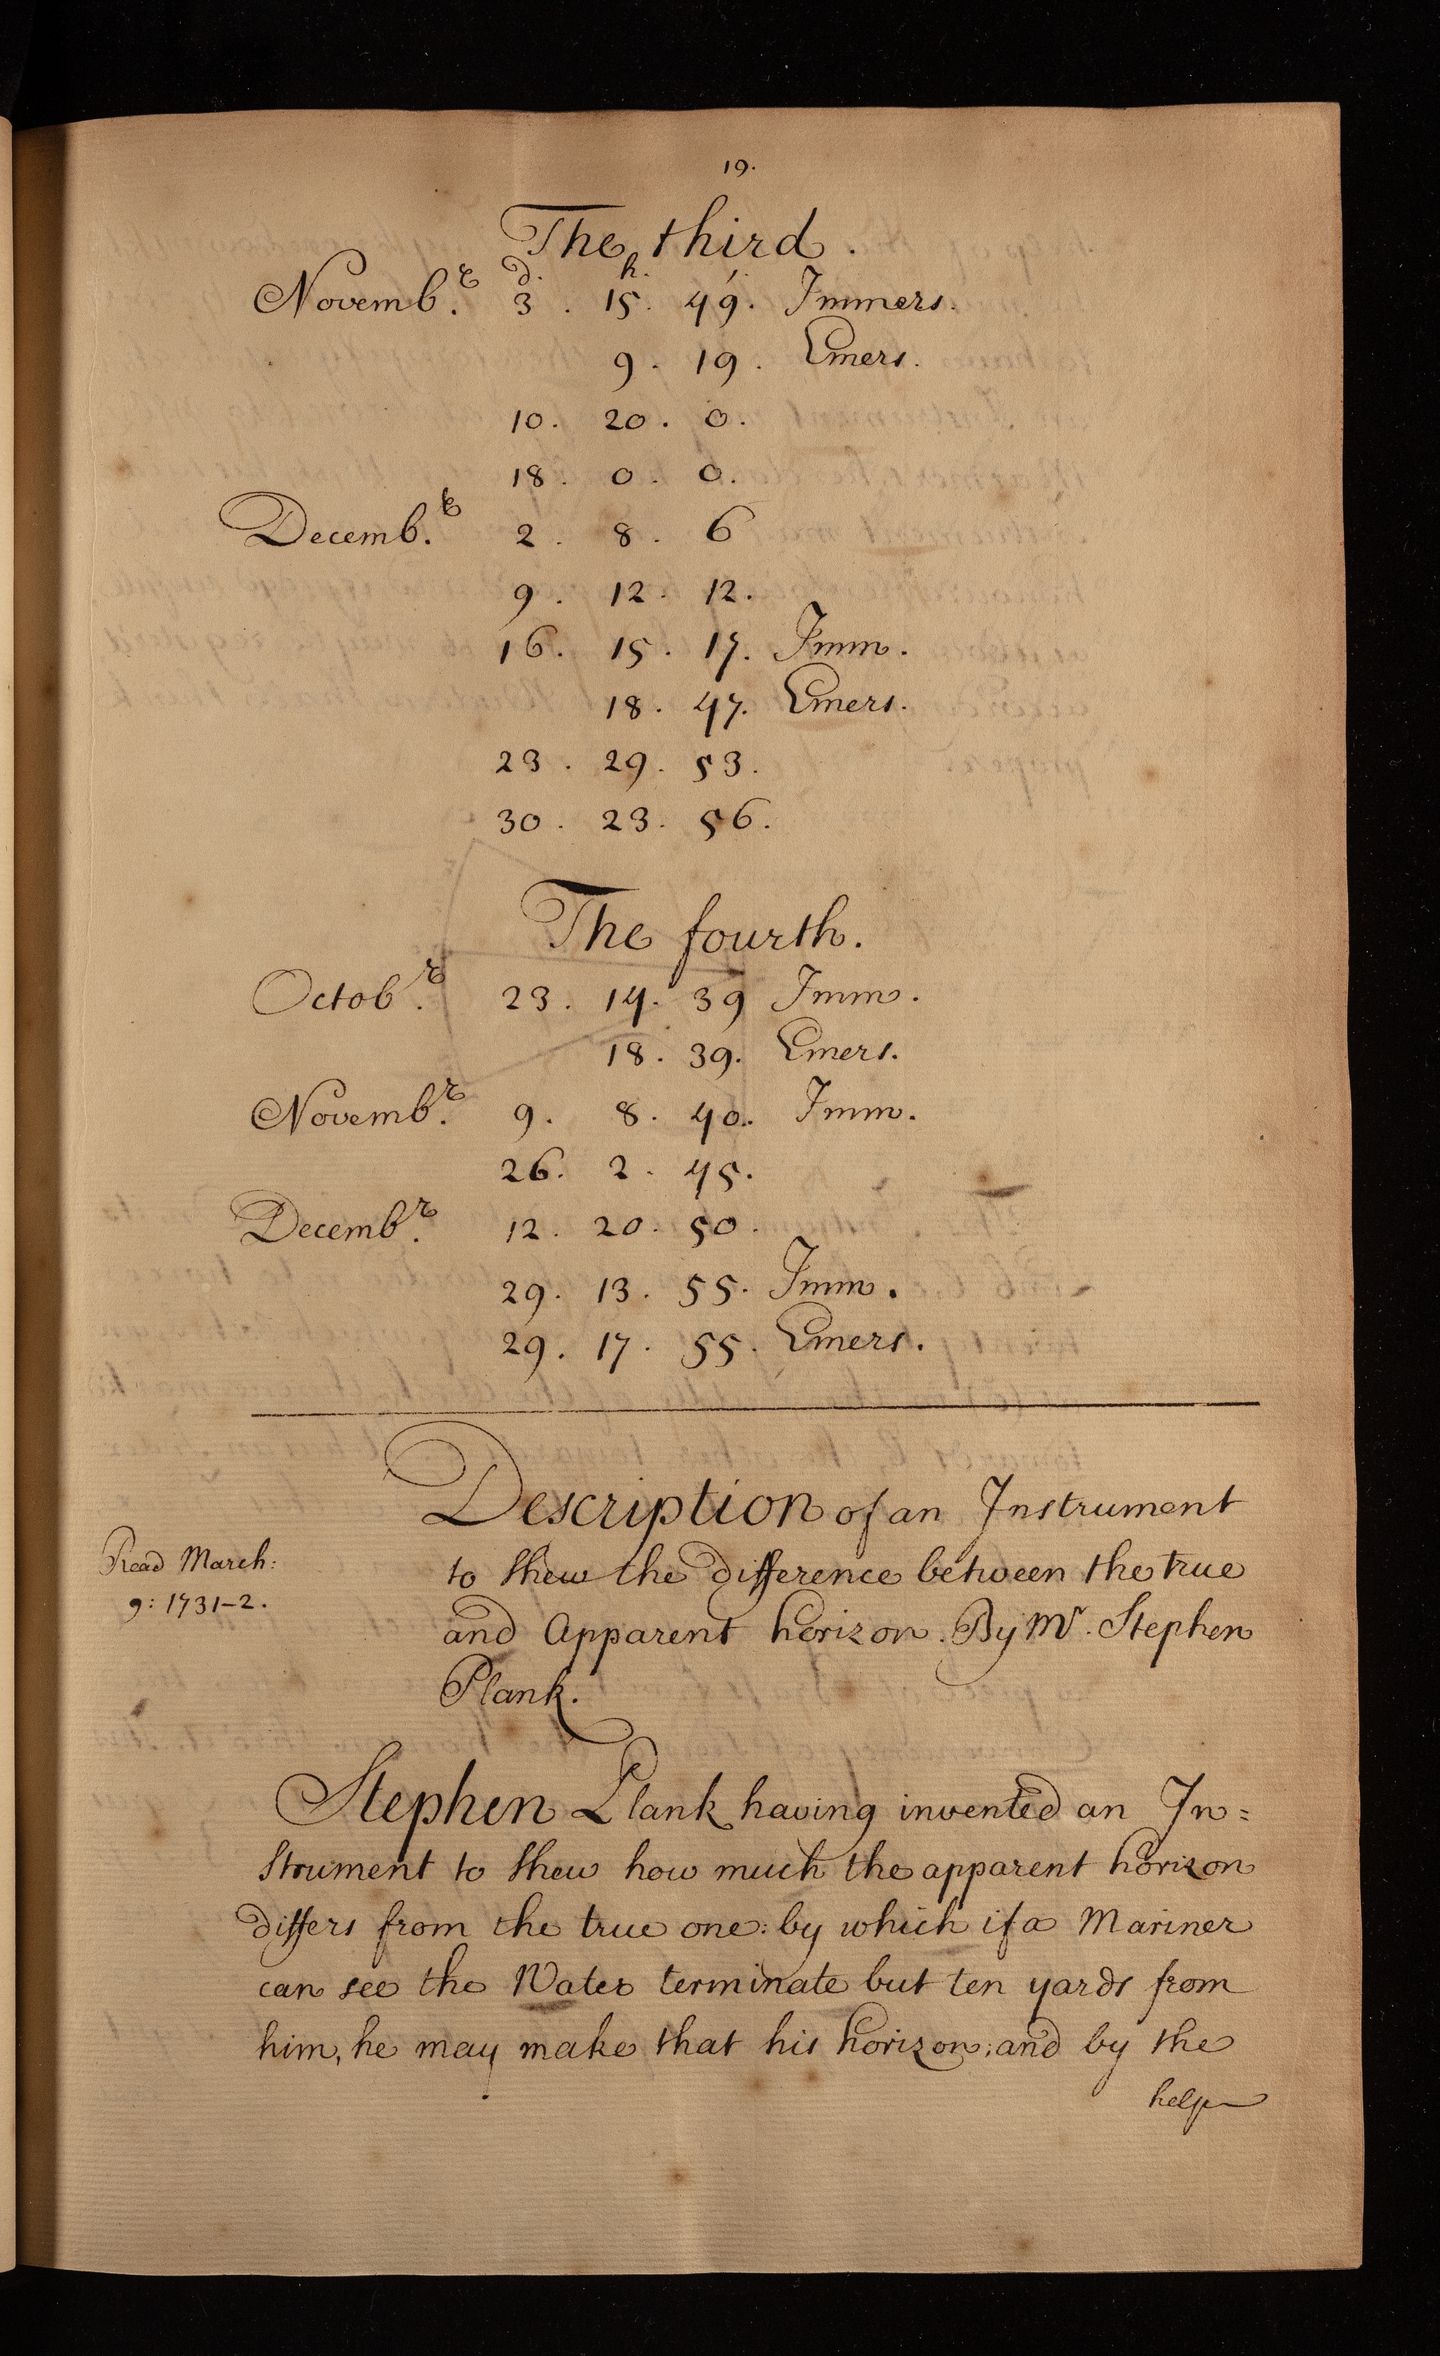 19.
The third.
d. h. ′.
Novemb.r 3. 15. 49. Immers.
9. 19. Emers.
10. 20. 0.
18. 0. 0.
Decemb.r 2. 8. 6
9. 12. 12.
16. 15. 17. Imm.
18. 47. Emers.
23. 29. 53.
30. 23. 56.
The fourth.
Octob.r 23. 14. 39 Imm.
18. 39. Emers.
Novemb.r 9. 8. 40. Imm.
26. 2. 45.
Decemb.r 12. 20. 50.
29. 13. 55. Imm.
29. 17. 55. Emers.
Description of an Instrument
to shew the difference between the true
and Apparent horizon. By Mr. Stephen
Plank.
Read March:
9: 1731-2.
Stephen Plank having invented an In=
strument to shew how much the apparent horizon
differs from the true one: by which if a Mariner
can see the Water terminate but ten yards from
him, he may make that his horizon; and by the
help